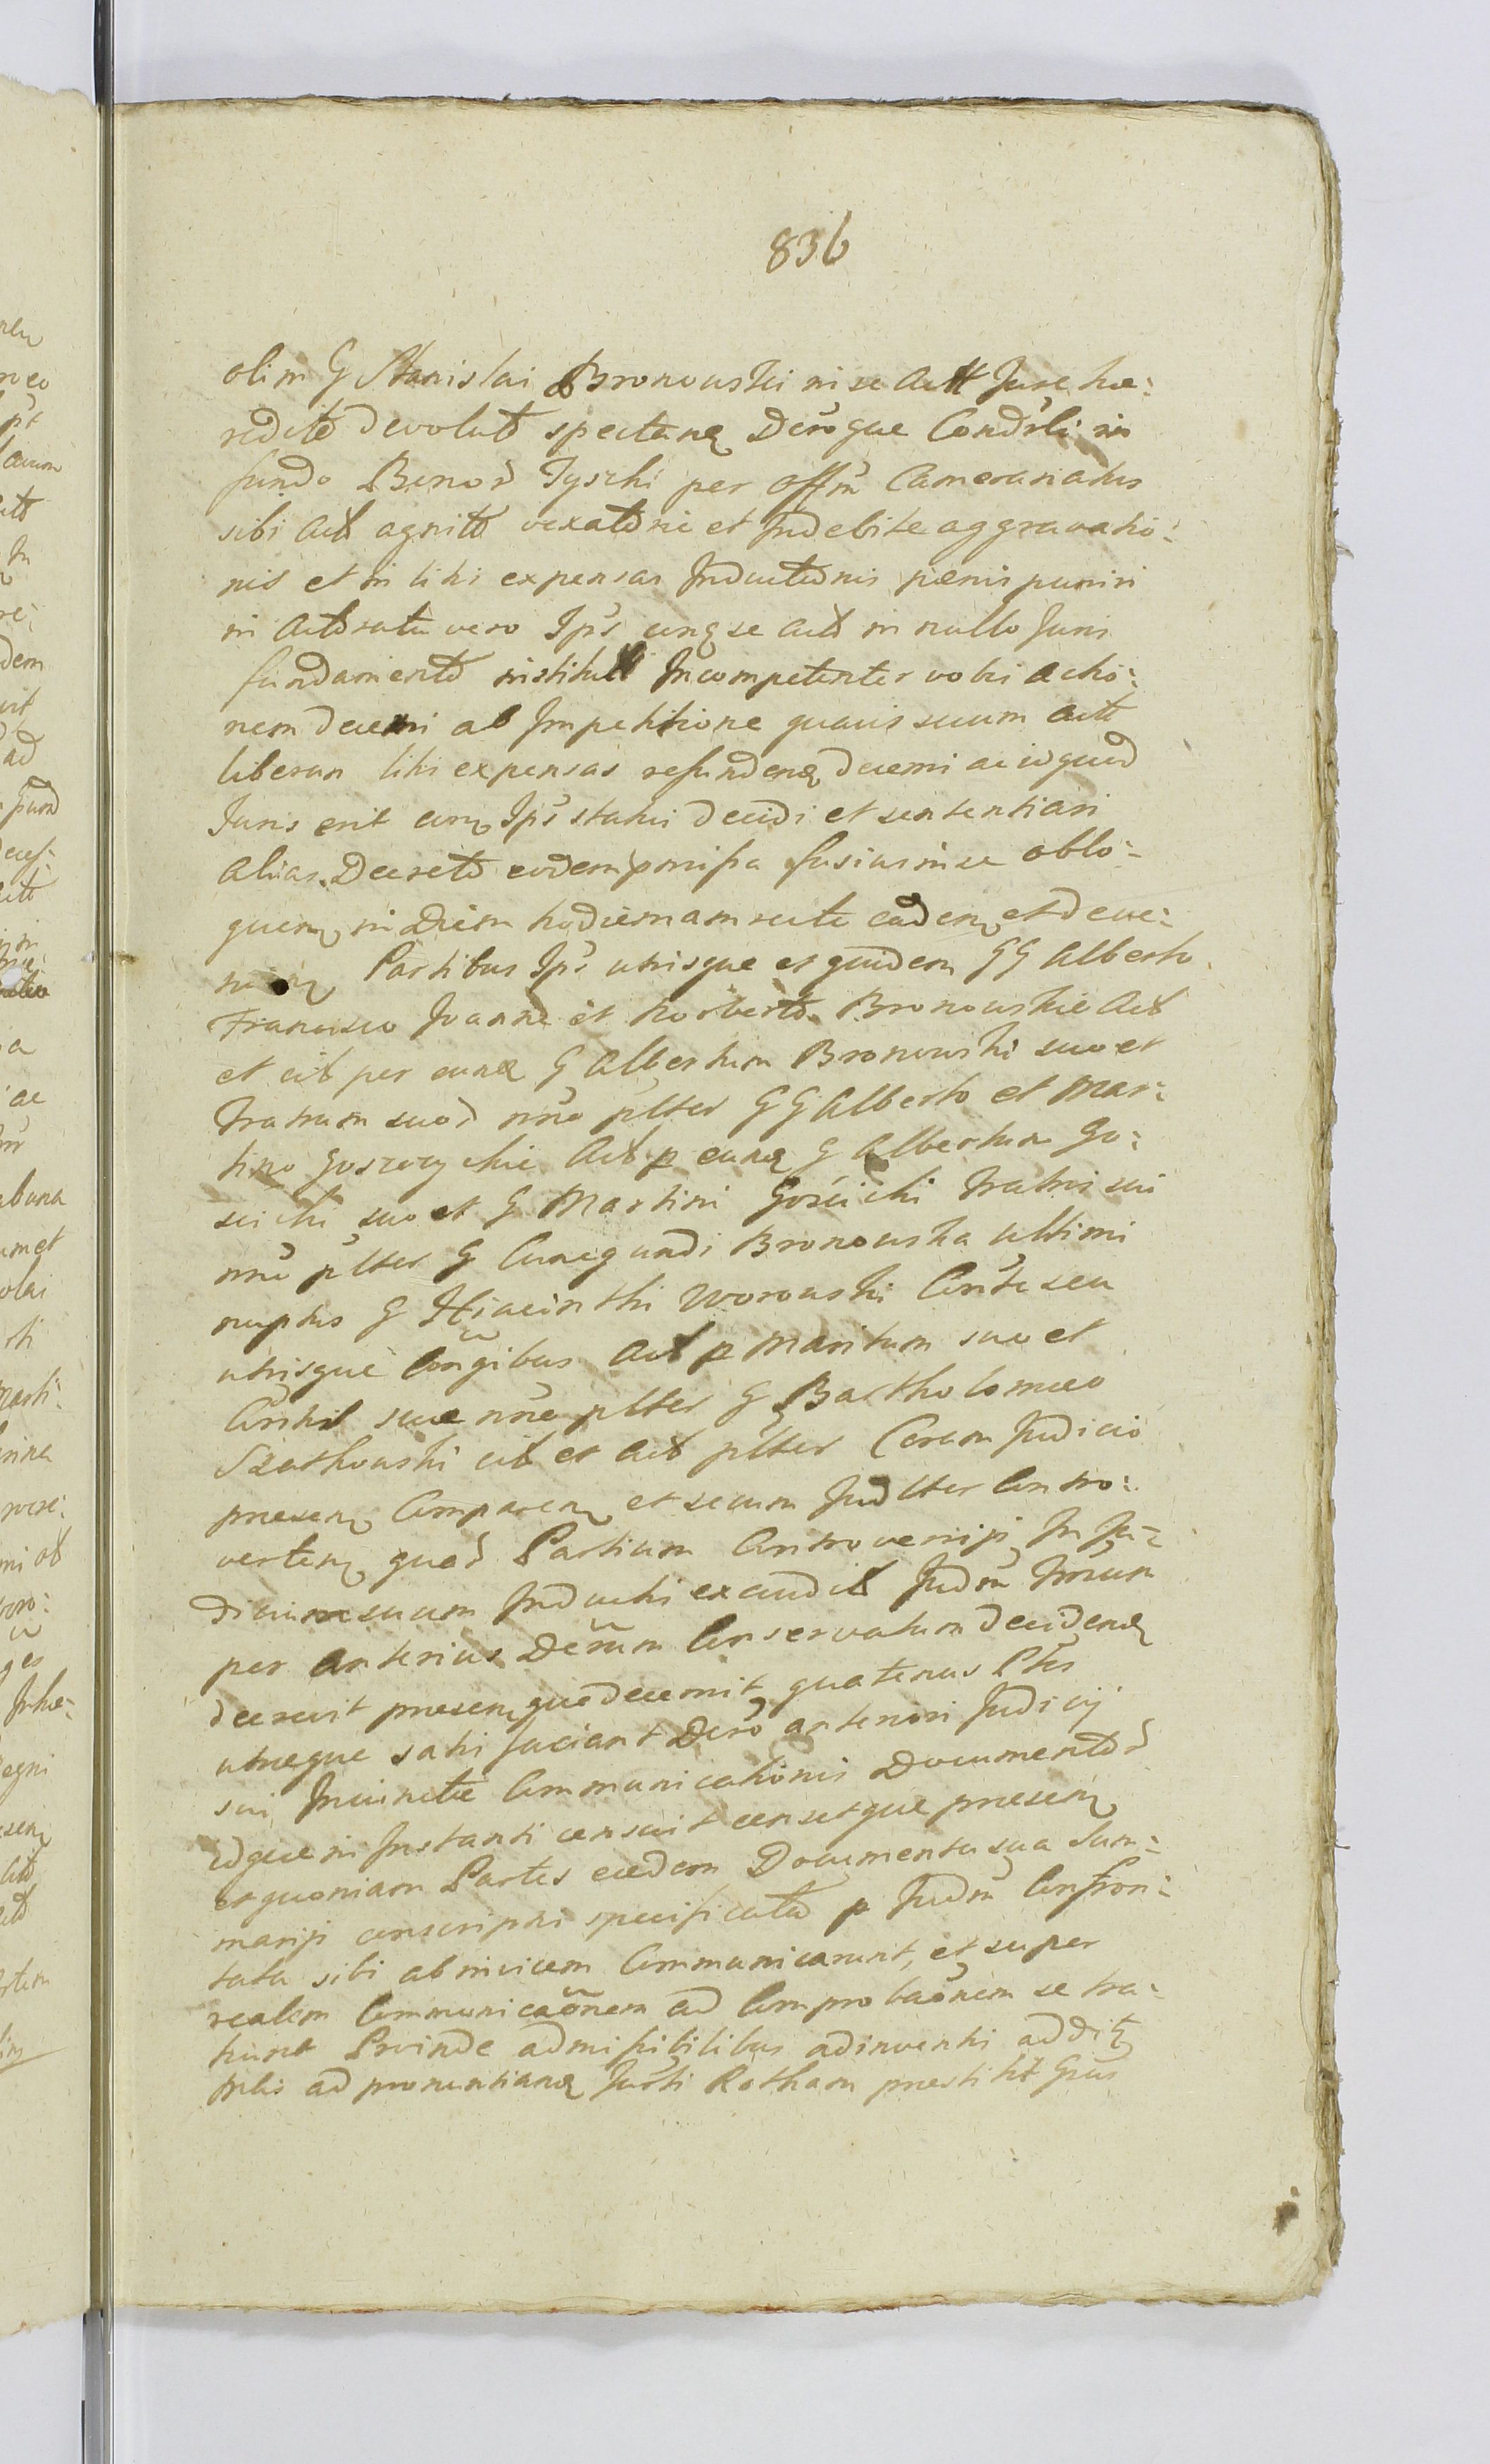 836
olim G Stanislai Bronowski in se Actt Jure hæ:
redito devolut spectanq Decroque Condrli in
fundo Bonor Tyszki per Offm Cameranatus
sibi Act agnitt vexatonie et Indebite aggravatio:
nis et in liti expensas Inductionis pænis puniri
in Actoratu vero Ips cung se Act in nullo Juris
fundamento institut Incompetenter vobis actio:
nem decerni ab Impetitione quavis suum Actt
liberari liti expensas refundenq decerni ac id quod
Juris erit cum Ips statui decidi et sententiari
alias Decreto eodem præmissa fusius in se oblo:
quenq, in Diem hodiernam recte cadenq et deve:
nienq Partibus Ips utrisque et quidem GG Alberto
Francisco Joanne et Norberto Bronowskie Act
et cit per eunq G Albertum Bronowski suo et
Fratrum suor nne pltter GG Alberto et Mar:
tino Goszczyckie Act p eunq G Albertum Go:
scicki suo et G Martini Gościcki Fratris sui
nne pltter G Cunegundi Bronowska ultimi
nuptus G Hiacinthi Worowski Conste seu
utrisque Congibus Act p Maritum suo et
Consts suæ nne pltter G Bartholomæo
Szatkowski cit et Act pltter Coram Judicio
præsenq Comparenq et secum Judltter Contro:
vertenq quar Partium Controversijs In Ju:
dicium suum Inducti exaudit Judm Imum
per anterius Decrum Conservatum decidenq
decrevit præsenque decernit quatenus Ptes
utræque satis faciant Decro anteriori Judicij
sui Invinctæ Communicationis Documentor
idque in Instanti censuit censetque præsenq
et quoniam Partes eædem Documenta sua Sum:
marijs conscripti specificata p Judm Confron:
tata sibi ab invicem Communicarunt, et super
realem Communicaonem ad Comprobaonem se tra:
hunt Proinde admissibilibus adinventi addit
telis ad pronuntianq Jurti Rotham prestitit Grus